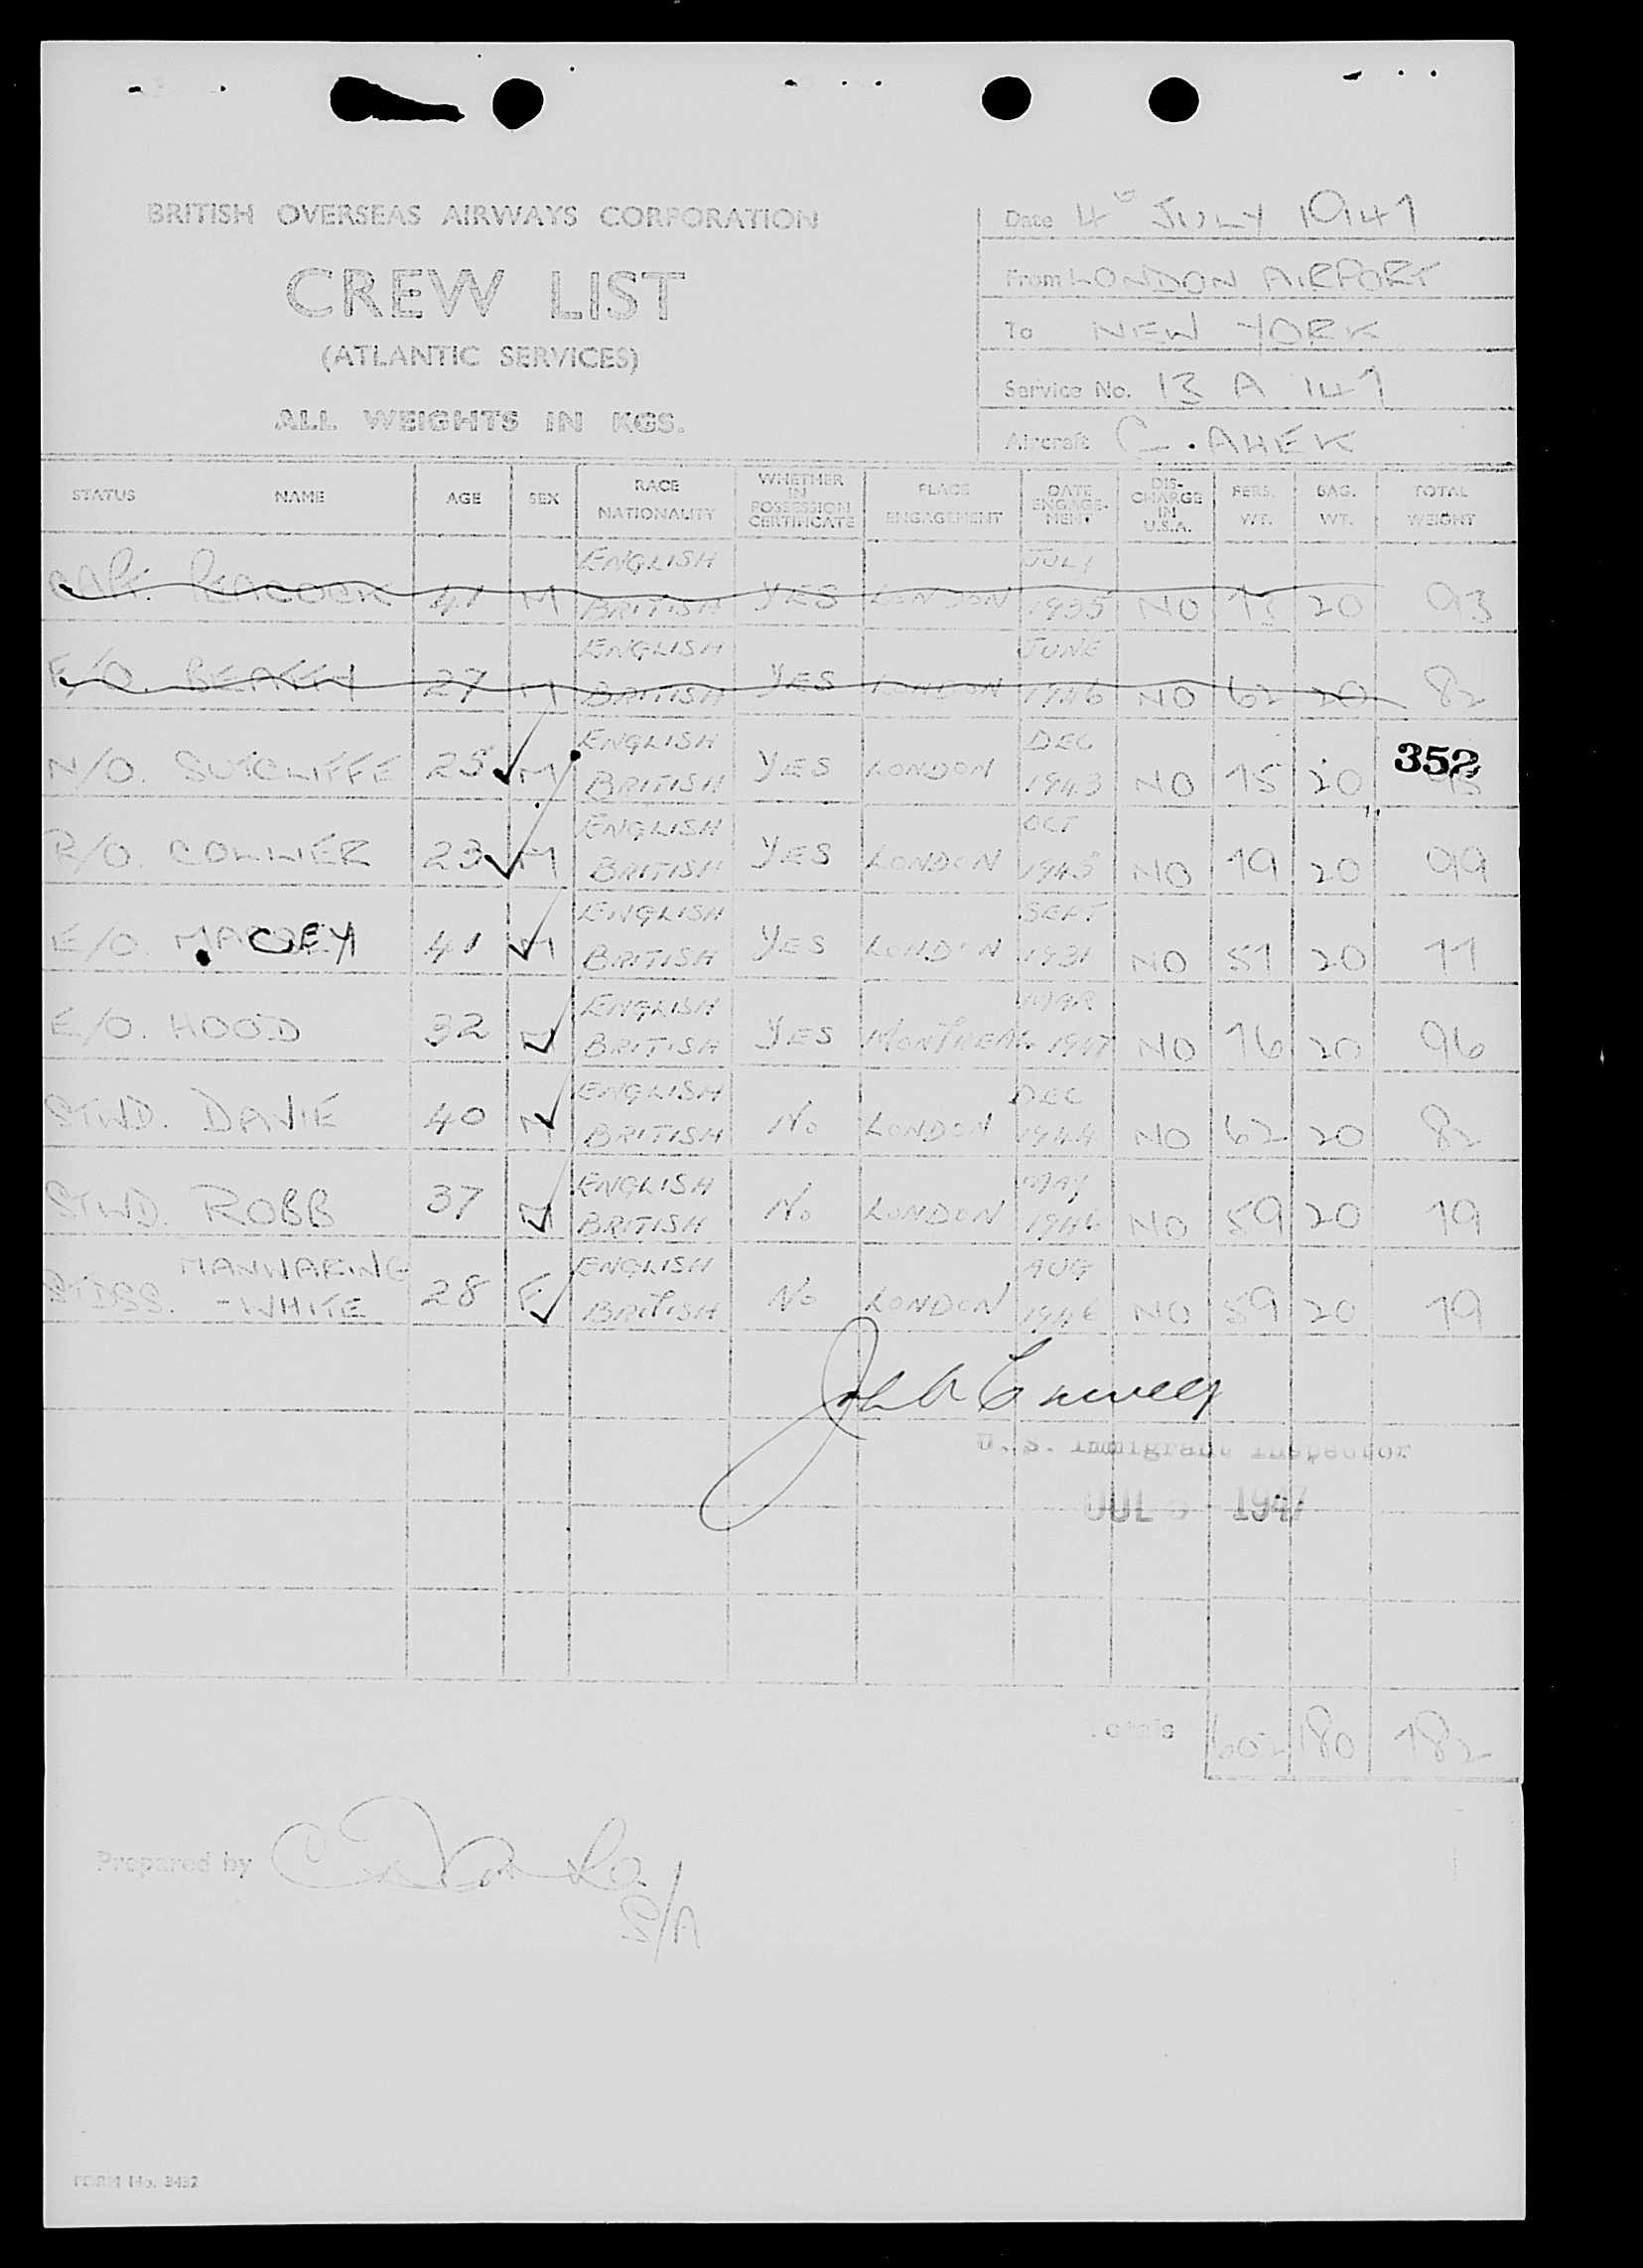 BRITISH OVERSEAS AIRWAYS CORPORATION
CREW LIST
(ATLANTIC SERVICES)
ALL WEIGHTS IN KGS.
Date 4 JULY 1947
From LONDON AIRPORT
To NEW YORK
Service No. 13 A 147
Aircraft G.AHEK
STATUS NAME AGE SEX RACE NATIONALITY WHETHER IN POSSESSION CERTIFICATE PLACE ENGAGEMENT DATE ENGAGE-MENT DIS-CHARGE IN U.S.A. PERS. WT. BAG. WT. TOTAL WEIGHT
CAPT. PEACOCK 41 M ENGLISH BRITISH YES LONDON JULY 1935 NO 73 20 93
F/O. BEATTY 27 M ENGLISH BRITISH YES LONDON JUNE 1946 NO 62 20 82
N/O. SUTCLIFFE 25 M ENGLISH BRITISH YES LONDON DEC 1943 NO 75 20 95
352
R/O. COLLIER 23 M ENGLISH BRITISH YES LONDON OCT 1945 NO 79 20 99
E/O. MACEY 41 M ENGLISH BRITISH YES LONDON SEPT 1931 NO 57 20 77
E/O. HOOD 32 M ENGLISH BRITISH YES MONTREAL MAR 1947 NO 76 20 96
STWD. DAVIE 40 M ENGLISH BRITISH No LONDON DEC 1944 NO 62 20 82
STWD. ROBB 37 M ENGLISH BRITISH No LONDON MAY 1946 NO 59 20 79
STDSS. MANWARING-WHITE 28 F ENGLISH BRITISH No LONDON AUG 1946 NO 59 20 79
U. S. Immigrant Inspector
JUL 1947
Totals 602 180 782
Prepared by
S/A
FORM No. 3432